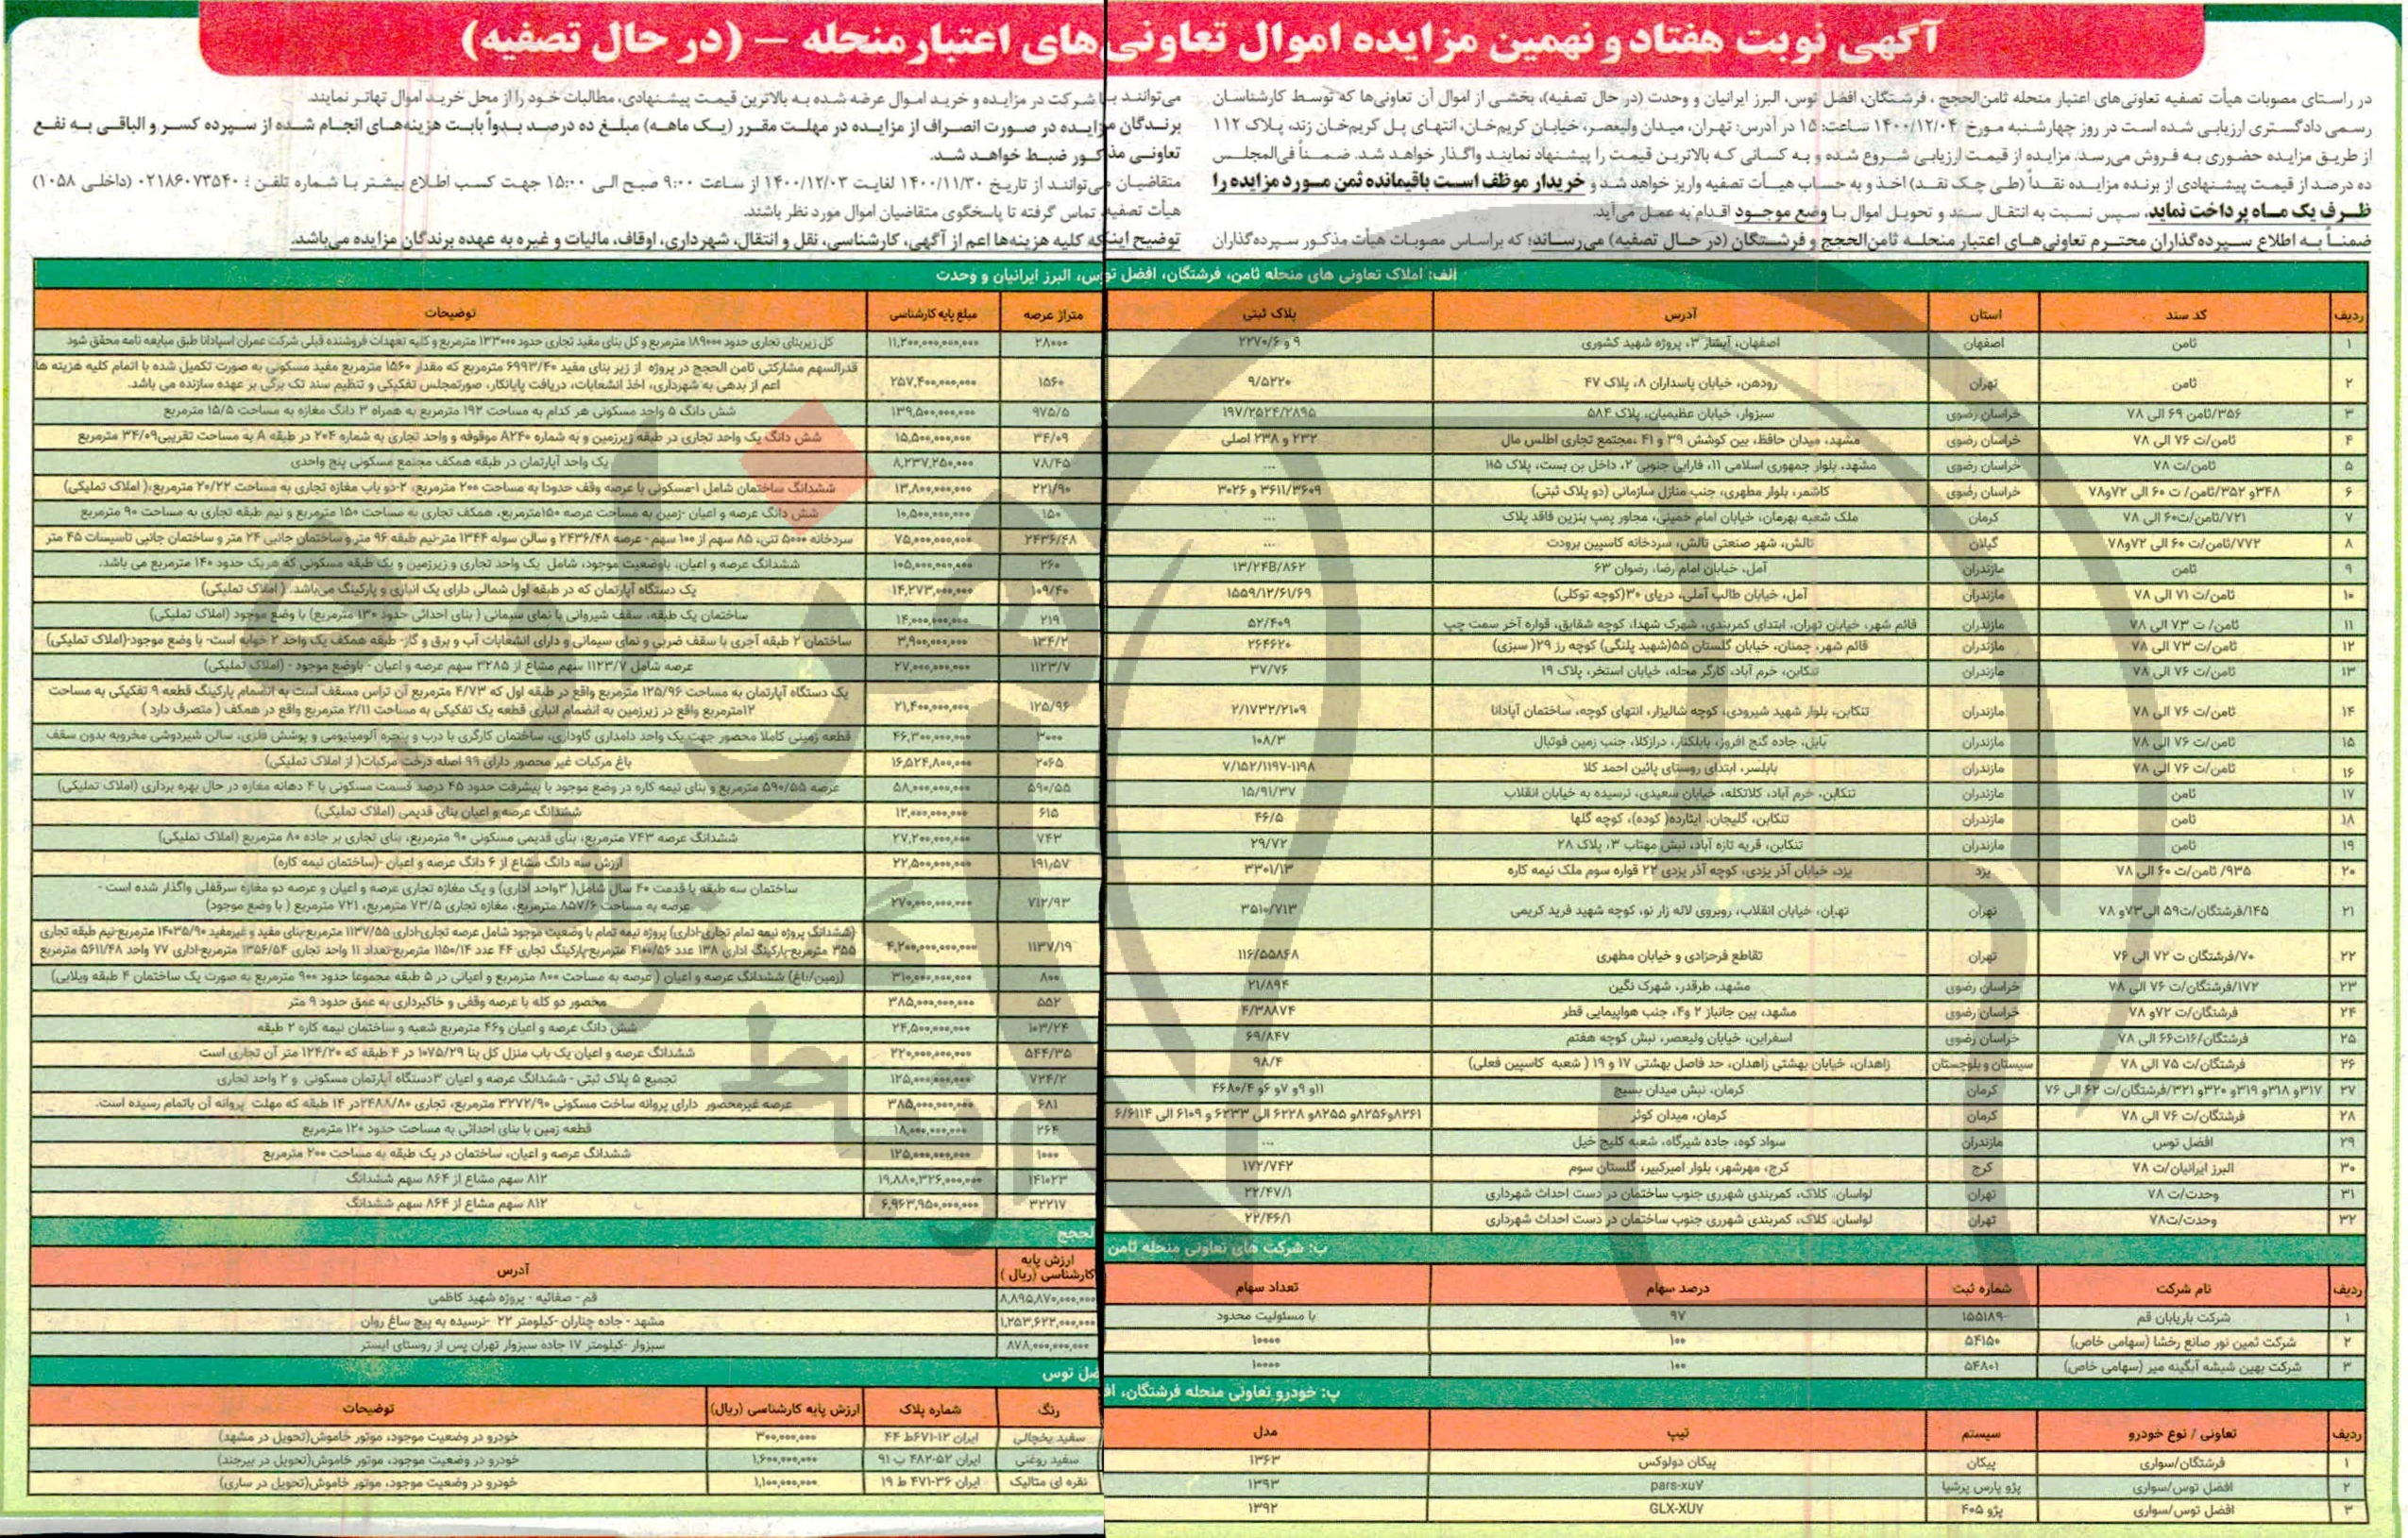 آگهی نوبت هفتاد و نهمین مزایده اموال تعاونی های اعتبار منحله – (در حال تصفیه)
در راستای مصوبات هیأت تصفیه تعاونی‌های اعتبار منحله ثامن‌الحجج ، فرشتگان، افضل توس، البرز ایرانیان و وحدت (در حال تصفیه)، بخشی از اموال آن تعاونی‌ها که توسط کارشناسان
رسمی دادگستری ارزیابی شده است در روز چهارشنبه مورخ ۱۴۰۰/۱۲/۰۴ ساعت: ۱۵ در آدرس: تهران، میدان ولیعصر، خیابان کریم‌خان، انتهای پل کریم‌خان زند، پلاک ۱۱۲
از طریق مزایده حضوری به فروش می‌رسد. مزایده از قیمت ارزیابی شروع شده و به کسانی که بالاترین قیمت را پیشنهاد نمایند واگذار خواهد شد. ضمناً فی‌المجلس
ده درصد از قیمت پیشنهادی از برنده مزایده نقداً (طی چک نقد) اخذ و به حساب هیأت تصفیه واریز خواهد شد و خریدار موظف است باقیمانده ثمن مورد مزایده را
ظرف یک ماه پرداخت نماید، سپس نسبت به انتقال سند و تحویل اموال با وضع موجود اقدام به عمل می‌آید.
ضمناً به اطلاع سپرده‌گذاران محترم تعاونی‌های اعتبار منحله ثامن‌الحجج و فرشتگان (در حال تصفیه) می‌رساند؛ که براساس مصوبات هیأت مذکور سپرده‌گذاران
می‌توانند با شرکت در مزایده و خرید اموال عرضه شده به بالاترین قیمت پیشنهادی، مطالبات خود را از محل خرید اموال تهاتر نمایند.
برندگان مزایده در صورت انصراف از مزایده در مهلت مقرر (یک ماهه) مبلغ ده درصد بدواً بابت هزینه‌های انجام شده از سپرده کسر و الباقی به نفع
تعاونی مذکور ضبط خواهد شد.
متقاضیان می‌توانند از تاریخ ۱۴۰۰/۱۱/۳۰ لغایت ۱۴۰۰/۱۲/۰۳ از ساعت ۹:۰۰ صبح الی ۱۵:۰۰ جهت کسب اطلاع بیشتر با شماره تلفن : ۰۲۱۸۶۰۷۳۵۴۰ (داخلی ۱۰۵۸)
هیأت تصفیه تماس گرفته تا پاسخگوی متقاضیان اموال مورد نظر باشند.
توضیح اینکه کلیه هزینه‌ها اعم از آگهی، کارشناسی، نقل و انتقال، شهرداری، اوقاف، مالیات و غیره به عهده برندگان مزایده می‌باشد.
الف: املاک تعاونی های منحله ثامن، فرشتگان، افضل توس، البرز ایرانیان و وحدت
ردیف کد سند استان آدرس پلاک ثبتی متراژ عرصه مبلغ پایه کارشناسی توضیحات
۱ ثامن اصفهان اصفهان، آبشار ۳، پروژه شهید کشوری ۹ و ۲۲۷۰/۶ ۲۸۰۰۰ ۱۱,۲۰۰,۰۰۰,۰۰۰,۰۰۰ کل زیربنای تجاری حدود ۱۸۹۰۰۰ مترمربع و کل بنای مفید تجاری حدود ۱۳۳۰۰۰ مترمربع و کلیه تعهدات فروشنده قبلی شرکت عمران اسپادانا طبق مبایعه نامه محقق شود
۲ ثامن تهران رودهن، خیابان پاسداران ۸، پلاک ۴۷ ۹/۵۲۲۰ ۱۵۶۰ ۲۵۷,۴۰۰,۰۰۰,۰۰۰ قدرالسهم مشارکتی ثامن الحجج در پروژه از زیر بنای مفید ۶۹۹۳/۴۰ مترمربع که مقدار ۱۵۶۰ مترمربع مفید مسکونی به صورت تکمیل شده با اتمام کلیه هزینه ها
اعم از بدهی به شهرداری، اخذ انشعابات، دریافت پایانکار، صورتمجلس تفکیکی و تنظیم سند تک برگی بر عهده سازنده می باشد.
۳ ۳۵۶/ثامن ۶۹ الی ۷۸ خراسان رضوی سبزوار، خیابان عظیمیان، پلاک ۵۸۴ ۱۹۷/۲۵۲۴/۲۸۹۵ ۹۷۵/۵ ۱۳۹,۵۰۰,۰۰۰,۰۰۰ شش دانگ ۵ واحد مسکونی هر کدام به مساحت ۱۹۲ مترمربع به همراه ۳ دانگ مغازه به مساحت ۱۵/۵ مترمربع
۴ ثامن/ت ۷۶ الی ۷۸ خراسان رضوی مشهد، میدان حافظ، بین کوشش ۳۹ و ۴۱ ،مجتمع تجاری اطلس مال ۲۳۲ و ۲۳۸ اصلی ۳۴/۰۹ ۱۵,۵۰۰,۰۰۰,۰۰۰ شش دانگ یک واحد تجاری در طبقه زیرزمین و به شماره A۲۴۰ موقوفه و واحد تجاری به شماره ۲۰۴ در طبقه A به مساحت تقریبی۳۴/۰۹ مترمربع
۵ ثامن/ت ۷۸ خراسان رضوی مشهد، بلوار جمهوری اسلامی ۱۱، فارابی جنوبی ۲، داخل بن بست، پلاک ۱۱۵ ... ۷۸/۴۵ ۸,۲۳۷,۲۵۰,۰۰۰ یک واحد آپارتمان در طبقه همکف مجتمع مسکونی پنج واحدی
۶ ۳۴۸و ۳۵۲/ثامن/ ت ۶۰ الی ۷۲و۷۸ خراسان رضوی کاشمر، بلوار مطهری، جنب منازل سازمانی (دو پلاک ثبتی) ۳۶۱۱/۳۶۰۹ و ۳۰۲۶ ۲۲۱/۹۰ ۱۳,۸۰۰,۰۰۰,۰۰۰ ششدانگ ساختمان شامل ۱-مسکونی با عرصه وقف حدودا به مساحت ۲۰۰ مترمربع، ۲-دو باب مغازه تجاری به مساحت ۲۰/۲۲ مترمربع،( املاک تملیکی)
۷ ۷۲۱/ثامن/ت۶۰ الی ۷۸ کرمان ملک شعبه بهرمان، خیابان امام خمینی، مجاور پمپ بنزین فاقد پلاک ... ۱۵۰ ۱۰,۵۰۰,۰۰۰,۰۰۰ شش دانگ عرصه و اعیان -زمین به مساحت عرصه ۱۵۰مترمربع، همکف تجاری به مساحت ۱۵۰ مترمربع و نیم طبقه تجاری به مساحت ۹۰ مترمربع
۸ ۷۷۲/ثامن/ت ۶۰ الی ۷۲و۷۸ گیلان تالش، شهر صنعتی تالش، سردخانه کاسپین برودت ... ۲۴۳۶/۴۸ ۷۵,۰۰۰,۰۰۰,۰۰۰ سردخانه ۵۰۰۰ تنی، ۸۵ سهم از ۱۰۰ سهم - عرصه ۲۴۳۶/۴۸ و سالن سوله ۱۳۴۴ متر-نیم طبقه ۹۶ متر و ساختمان جانبی ۲۴ متر و ساختمان جانبی تاسیسات ۴۵ متر
۹ ثامن مازندران آمل، خیابان امام رضا، رضوان ۶۳ ۱۳/۲۴B/۸۶۲ ۲۶۰ ۱۰۵,۰۰۰,۰۰۰,۰۰۰ ششدانگ عرصه و اعیان، باوضعیت موجود، شامل یک واحد تجاری و زیرزمین و یک طبقه مسکونی که هریک حدود ۱۴۰ مترمربع می باشد.
۱۰ ثامن/ت ۷۱ الی ۷۸ مازندران آمل، خیابان طالب آملی، دریای ۳۰(کوچه توکلی) ۱۵۵۹/۱۲/۶۱/۶۹ ۱۰۹/۴۰ ۱۴,۲۷۳,۰۰۰,۰۰۰ یک دستگاه آپارتمان که در طبقه اول شمالی دارای یک انباری و پارکینگ می‌باشد. ( املاک تملیکی)
۱۱ ثامن/ ت ۷۳ الی ۷۸ مازندران قائم شهر، خیابان تهران، ابتدای کمربندی، شهرک شهدا، کوچه شقایق، قواره آخر سمت چپ ۵۲/۴۰۹ ۲۱۹ ۱۴,۰۰۰,۰۰۰,۰۰۰ ساختمان یک طبقه، سقف شیروانی با نمای سیمانی ( بنای احداثی حدود ۱۳۰ مترمربع) با وضع موجود (املاک تملیکی)
۱۲ ثامن/ت ۷۳ الی ۷۸ مازندران قائم شهر، چمنان، خیابان گلستان ۵۵(شهید پلنگی) کوچه رز ۲۹( سبزی) ۲۶۴۶۲۰ ۱۳۴/۲ ۳,۹۰۰,۰۰۰,۰۰۰ ساختمان ۲ طبقه آجری با سقف ضربی و نمای سیمانی و دارای انشعابات آب و برق و گاز- طبقه همکف یک واحد ۲ خوابه است- با وضع موجود-(املاک تملیکی)
۱۳ ثامن/ت ۷۶ الی ۷۸ مازندران تنکابن، خرم آباد، کارگر محله، خیابان استخر، پلاک ۱۹ ۳۷/۷۶ ۱۱۲۳/۷ ۲۷,۰۰۰,۰۰۰,۰۰۰ عرصه شامل ۱۱۲۳/۷ سهم مشاع از ۳۲۸۵ سهم عرصه و اعیان - باوضع موجود - (املاک تملیکی)
۱۴ ثامن/ت ۷۶ الی ۷۸ مازندران تنکابن، بلوار شهید شیرودی، کوچه شالیزار، انتهای کوچه، ساختمان آپادانا ۲/۱۷۳۲/۲۱۰۹ ۱۲۵/۹۶ ۲۱,۴۰۰,۰۰۰,۰۰۰ یک دستگاه آپارتمان به مساحت ۱۲۵/۹۶ مترمربع واقع در طبقه اول که ۴/۷۳ مترمربع آن تراس مسقف است به انضمام پارکینگ قطعه ۹ تفکیکی به مساحت
۱۲مترمربع واقع در زیرزمین به انضمام انباری قطعه یک تفکیکی به مساحت ۲/۱۱ مترمربع واقع در همکف ( متصرف دارد )
۱۵ ثامن/ت ۷۶ الی ۷۸ مازندران بابل، جاده گنج افروز، بابلکنار، درازکلا، جنب زمین فوتبال ۱۰۸/۳ ۳۰۰۰ ۴۶,۳۰۰,۰۰۰,۰۰۰ قطعه زمینی کاملا محصور جهت یک واحد دامداری گاوداری، ساختمان کارگری با درب و پنجره آلومینیومی و پوشش فلزی، سالن شیردوشی مخروبه بدون سقف
۱۶ ثامن/ت ۷۶ الی ۷۸ مازندران بابلسر، ابتدای روستای پائین احمد کلا ۷/۱۵۲/۱۱۹۷-۱۱۹۸ ۲۰۶۵ ۱۶,۵۲۴,۸۰۰,۰۰۰ باغ مرکبات غیر محصور دارای ۹۹ اصله درخت مرکبات( از املاک تملیکی)
۱۷ ثامن مازندران تنکابن، خرم آباد، کلاتکله، خیابان سعیدی، نرسیده به خیابان انقلاب ۱۵/۹۱/۳۷ ۵۹۰/۵۵ ۵۸,۰۰۰,۰۰۰,۰۰۰ عرصه ۵۹۰/۵۵ مترمربع و بنای نیمه کاره در وضع موجود با پیشرفت حدود ۴۵ درصد قسمت مسکونی با ۴ دهانه مغازه در حال بهره برداری (املاک تملیکی)
۱۸ ثامن مازندران تنکابن، گلیجان، ایثارده( کوده)، کوچه گلها ۴۶/۵ ۶۱۵ ۱۲,۰۰۰,۰۰۰,۰۰۰ ششدانگ عرصه و اعیان بنای قدیمی (املاک تملیکی)
۱۹ ثامن مازندران تنکابن، قریه تازه آباد، نبش مهتاب ۳، پلاک ۲۸ ۲۹/۷۲ ۷۴۳ ۲۷,۲۰۰,۰۰۰,۰۰۰ ششدانگ عرصه ۷۴۳ مترمربع، بنای قدیمی مسکونی ۹۰ مترمربع، بنای تجاری بر جاده ۸۰ مترمربع (املاک تملیکی)
۲۰ ۹۳۵/ ثامن/ت ۶۰ الی ۷۸ یزد یزد، خیابان آذر یزدی، کوچه آذر یزدی ۲۲ قواره سوم ملک نیمه کاره ۳۳۰۱/۱۳ ۱۹۱/۵۷ ۲۲,۵۰۰,۰۰۰,۰۰۰ ارزش سه دانگ مشاع از ۶ دانگ عرصه و اعیان -(ساختمان نیمه کاره)
۲۱ ۱۴۵/فرشتگان/ت۵۹ الی۷۳و ۷۸ تهران تهران، خیابان انقلاب، روبروی لاله زار نو، کوچه شهید فرید کریمی ۳۵۱۰/۷۱۳ ۷۱۲/۹۳ ۲۷۰,۰۰۰,۰۰۰,۰۰۰ ساختمان سه طبقه با قدمت ۴۰ سال شامل( ۳واحد اداری) و یک مغازه تجاری عرصه و اعیان و عرصه دو مغازه سرقفلی واگذار شده است -
عرصه به مساحت ۸۵۷/۶ مترمربع، مغازه تجاری ۷۳/۵ مترمربع، ۷۲۱ مترمربع ( با وضع موجود)
۲۲ ۷۰/فرشتگان ت ۷۲ الی ۷۶ تهران تقاطع فرحزادی و خیابان مطهری ۱۱۶/۵۵۸۶۸ ۱۱۳۷/۱۹ ۴,۲۰۰,۰۰۰,۰۰۰,۰۰۰ (ششدانگ پروژه نیمه تمام تجاری-اداری) پروژه نیمه تمام با وضعیت موجود شامل عرصه تجاری-اداری ۱۱۳۷/۵۵ مترمربع-بنای مفید و غیرمفید ۱۴۰۳۵/۹۰ مترمربع-نیم طبقه تجاری
۳۵۵ مترمربع-پارکینگ اداری ۱۳۸ عدد ۴۱۰۰/۵۶ مترمربع-پارکینگ تجاری ۴۴ عدد ۱۱۵۰/۱۴ مترمربع-تعداد ۱۱ واحد تجاری ۱۳۵۶/۵۴ مترمربع-اداری ۷۷ واحد ۵۶۱۱/۴۸ مترمربع
۲۳ ۱۷۲/فرشتگان/ت ۷۶ الی ۷۸ خراسان رضوی مشهد، طرقدر، شهرک نگین ۲۱/۸۹۴ ۸۰۰ ۳۱۰,۰۰۰,۰۰۰,۰۰۰ (زمین/باغ) ششدانگ عرصه و اعیان ( عرصه به مساحت ۸۰۰ مترمربع و اعیانی در ۵ طبقه مجموعا حدود ۹۰۰ مترمربع به صورت یک ساختمان ۴ طبقه ویلایی)
۲۴ فرشتگان/ت ۷۲و ۷۸ خراسان رضوی مشهد، بین جانباز ۲ و۴، جنب هواپیمایی قطر ۴/۳۸۸۷۴ ۵۵۲ ۳۸۵,۰۰۰,۰۰۰,۰۰۰ محصور دو کله با عرصه وقفی و خاکبرداری به عمق حدود ۹ متر
۲۵ فرشتگان/۱۶ت۶۶ الی ۷۸ خراسان رضوی اسفراین، خیابان ولیعصر، نبش کوچه هفتم ۶۹/۸۴۷ ۱۰۳/۲۴ ۲۴,۵۰۰,۰۰۰,۰۰۰ شش دانگ عرصه و اعیان و۴۶ مترمربع شعبه و ساختمان نیمه کاره ۲ طبقه
۲۶ فرشتگان/ت ۷۵ الی ۷۸ سیستان و بلوچستان زاهدان، خیابان بهشتی زاهدان، حد فاصل بهشتی ۱۷ و ۱۹ ( شعبه کاسپین فعلی) ۹۸/۴ ۵۴۴/۳۵ ۲۲۰,۰۰۰,۰۰۰,۰۰۰ ششدانگ عرصه و اعیان یک باب منزل کل بنا ۱۰۷۵/۲۹ در ۴ طبقه که ۱۲۴/۲۰ متر آن تجاری است
۲۷ ۳۱۷و ۳۱۸و ۳۱۹و ۳۲۰و ۳۲۱/فرشتگان/ت ۶۲ الی ۷۶ کرمان کرمان، نبش میدان بسیج ۱۱و ۹و ۷و ۶و ۴۶۸۰/۴ ۷۲۴/۲ ۱۲۵,۰۰۰,۰۰۰,۰۰۰ تجمیع ۵ پلاک ثبتی - ششدانگ عرصه و اعیان ۳دستگاه آپارتمان مسکونی و ۲ واحد تجاری
۲۸ فرشتگان/ت ۷۶ الی ۷۸ کرمان کرمان، میدان کوثر ۸۲۶۱و۸۲۵۶و ۸۲۵۵و ۶۲۲۸ الی ۶۲۳۳ و ۶۱۰۹ الی ۶/۶۱۱۴ ۶۸۱ ۳۸۵,۰۰۰,۰۰۰,۰۰۰ عرصه غیرمحصور دارای پروانه ساخت مسکونی ۳۲۷۲/۹۰ مترمربع، تجاری ۲۴۸۸/۸۰در ۱۴ طبقه که مهلت پروانه آن باتمام رسیده است.
۲۹ افضل توس مازندران سواد کوه، جاده شیرگاه، شعبه کلیج خیل ... ۲۶۴ ۱۸,۰۰۰,۰۰۰,۰۰۰ قطعه زمین با بنای احداثی به مساحت حدود ۱۲۰ مترمربع
۳۰ البرز ایرانیان/ت ۷۸ کرج کرج، مهرشهر، بلوار امیرکبیر، گلستان سوم ۱۷۲/۷۴۲ ۱۰۰۰ ۱۲۵,۰۰۰,۰۰۰,۰۰۰ ششدانگ عرصه و اعیان، ساختمان در یک طبقه به مساحت ۲۰۰ مترمربع
۳۱ وحدت/ت ۷۸ تهران لواسان، کلاک، کمربندی شهرری جنوب ساختمان در دست احداث شهرداری ۲۲/۴۷/۱ ۱۴۱۰۲۳ ۱۹,۸۸۰,۳۲۶,۰۰۰,۰۰۰ ۸۱۲ سهم مشاع از ۸۶۴ سهم ششدانگ
۳۲ وحدت/ت۷۸ تهران لواسان، کلاک، کمربندی شهرری جنوب ساختمان در دست احداث شهرداری ۲۲/۴۶/۱ ۳۲۲۱۷ ۶,۹۶۳,۹۵۰,۰۰۰,۰۰۰ ۸۱۲ سهم مشاع از ۸۶۴ سهم ششدانگ
ب: شرکت های تعاونی منحله ثامن لحجج
ردیف نام شرکت شماره ثبت درصد سهام تعداد سهام ارزش پایه کارشناسی (ریال ) آدرس
۱ شرکت باریابان قم ۱۵۵۱۸۹۰ ۹۷ با مسئولیت محدود ۸,۸۹۵,۸۷۰,۰۰۰,۰۰۰ قم - صفائیه - پروژه شهید کاظمی
۲ شرکت ثمین نور صانع رخشا (سهامی خاص) ۵۴۱۵۰ ۱۰۰ ۱۰۰۰۰ ۱,۲۵۳,۶۲۲,۰۰۰,۰۰۰ مشهد - جاده چناران -کیلومتر ۲۲ -نرسیده به پیچ ساغ روان
۳ شرکت بهین شیشه آبگینه میر (سهامی خاص) ۵۴۸۰۱ ۱۰۰ ۱۰۰۰۰ ۸۷۸,۰۰۰,۰۰۰,۰۰۰ سبزوار -کیلومتر ۱۷ جاده سبزوار تهران پس از روستای ایستر
پ: خودرو تعاونی منحله فرشتگان، افضل توس
ردیف تعاونی / نوع خودرو سیستم تیپ مدل رنگ شماره پلاک ارزش پایه کارشناسی (ریال) توضیحات
۱ فرشتگان/سواری پیکان پیکان دولوکس ۱۳۶۳ سفید یخچالی ایران ۱۲-۶۷۱ط ۴۴ ۳۰۰,۰۰۰,۰۰۰ خودرو در وضعیت موجود، موتور خاموش(تحویل در مشهد)
۲ افضل توس/سواری پژو پارس پرشیا pars-xu۷ ۱۳۹۳ سفید روغنی ایران ۵۲-۴۸۲ ب ۹۱ ۱,۶۰۰,۰۰۰,۰۰۰ خودرو در وضعیت موجود، موتور خاموش(تحویل در بیرجند)
۳ افضل توس/سواری پژو ۴۰۵ GLX-XU۷ ۱۳۹۲ نقره ای متالیک ایران ۳۶-۴۷۱ ط ۱۹ ۱,۱۰۰,۰۰۰,۰۰۰ خودرو در وضعیت موجود، موتور خاموش(تحویل در ساری)